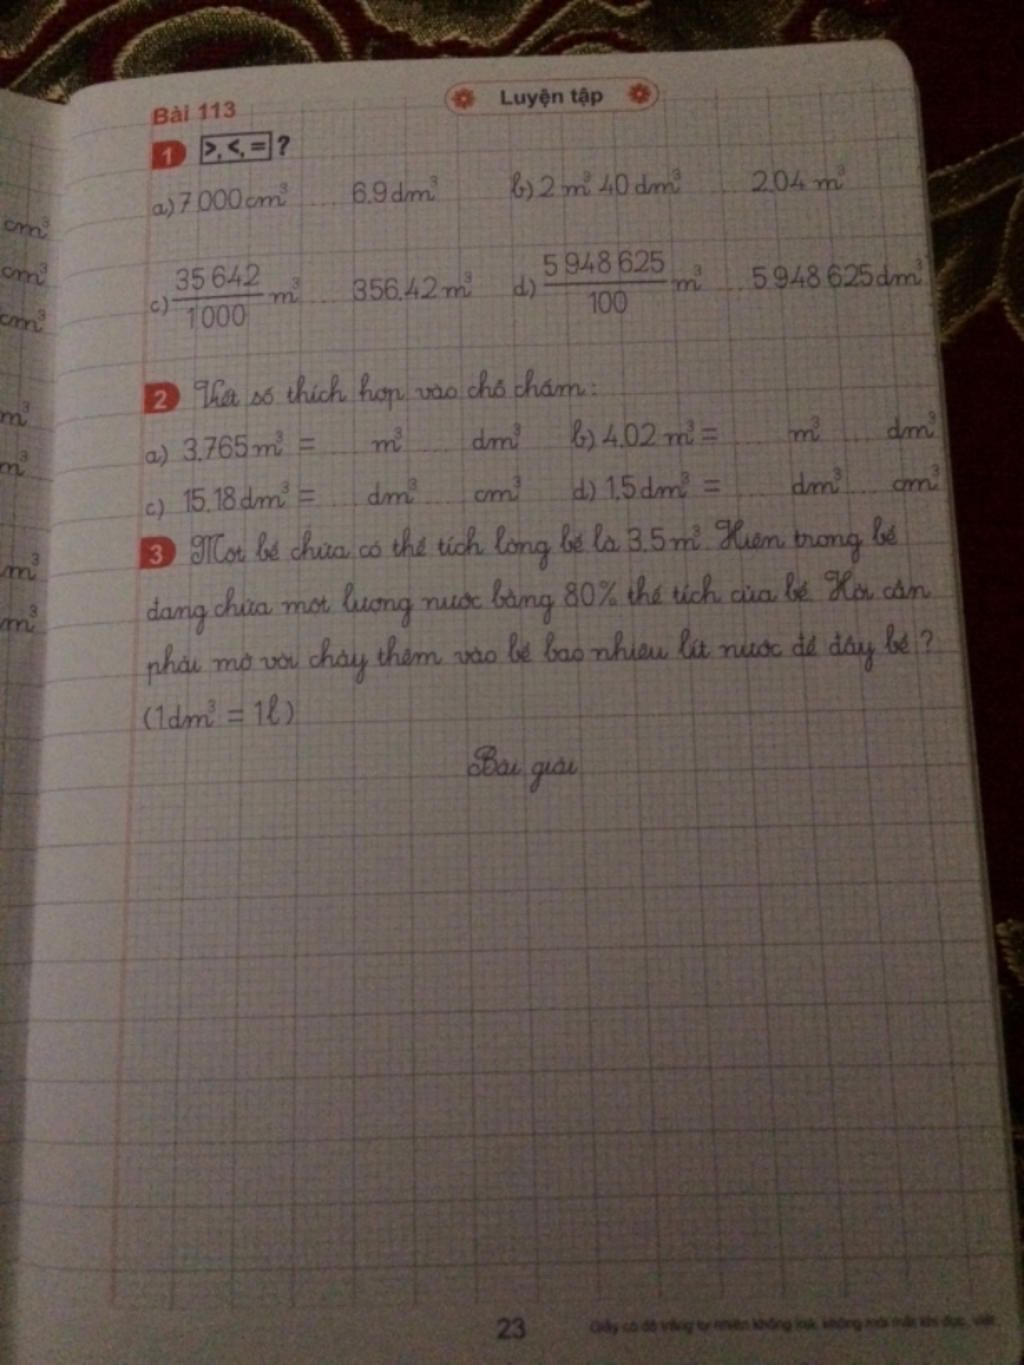 Bài 113
Luyện tập
1 >, <, = ?
a) 7 000 cm³ ..... 6,9 dm³ b) 2 m³ 40 dm³ ..... 2,04 m³
c) 35 642/1000 m³ ..... 356,42 m³ d) 5 948 625/100 m³ ..... 5 948 625 dm³
2 Viết số thích hợp vào chỗ chấm:
a) 3,765 m³ = ..... m³ ..... dm³ b) 4,02 m³ = ..... m³ ..... dm³
c) 15,18 dm³ = ..... dm³ ..... cm³ d) 1,5 dm³ = ..... dm³ ..... cm³
3 Một bể chứa có thể tích lòng bể là 3,5 m³. Hiện trong bể
đang chứa một lượng nước bằng 80% thể tích của bể. Hỏi cần
phải mở vòi chảy thêm vào bể bao nhiêu lít nước để đầy bể ?
(1dm³ = 1l)
Bài giải
23
Giấy có độ trắng tự nhiên không loá, không mỏi mắt khi đọc, viết.
cm³
cm³
cm³
m³
m³
m³
m³